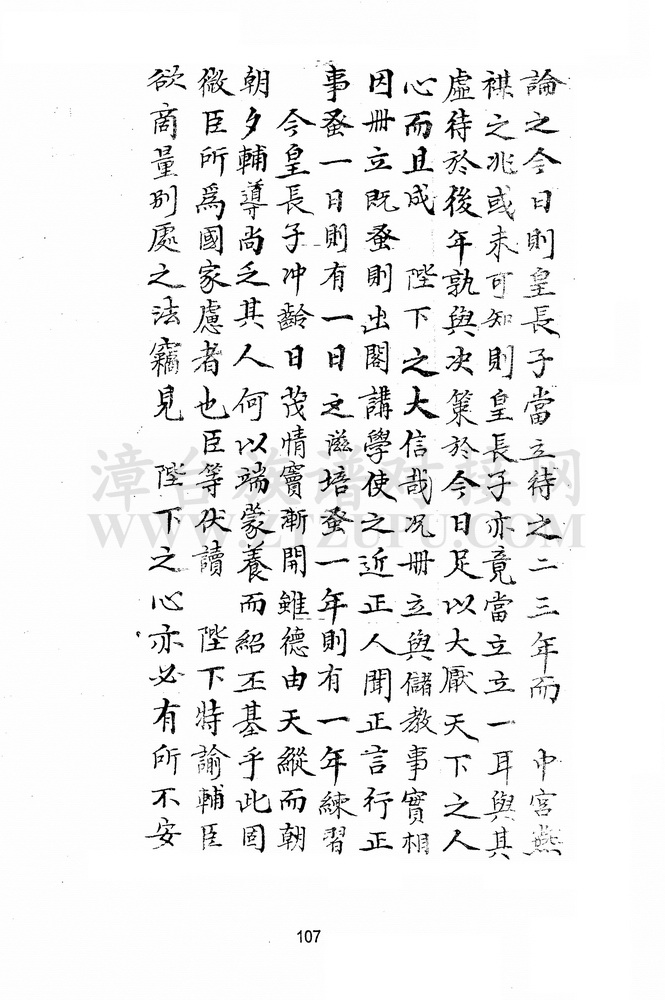 論之今日則皇長子當立待之二三年而　中宮燕
禖之兆或未可知則皇長子亦竟當立立一耳與其
虛待於後年孰與决策於今日足以大厭天下之人
心而且成　陛下之大信哉况冊立與儲教事實相
因冊立既蚤則出閣講學使之近正人聞正言行正
事蚤一日則有一日之滋培蚤一年則有一年練習
今皇長子冲齡日茂情竇漸開雖德由天縱而朝
朝夕輔導尚乏其人何以端蒙養而紹丕基乎此固
微臣所爲國家慮者也臣等伏讀　陛下特諭輔臣
欲商量別處之法竊見　陛下之心亦必有所不安
漳台族谱对接网
WWW.ZTZUPU.COM
107